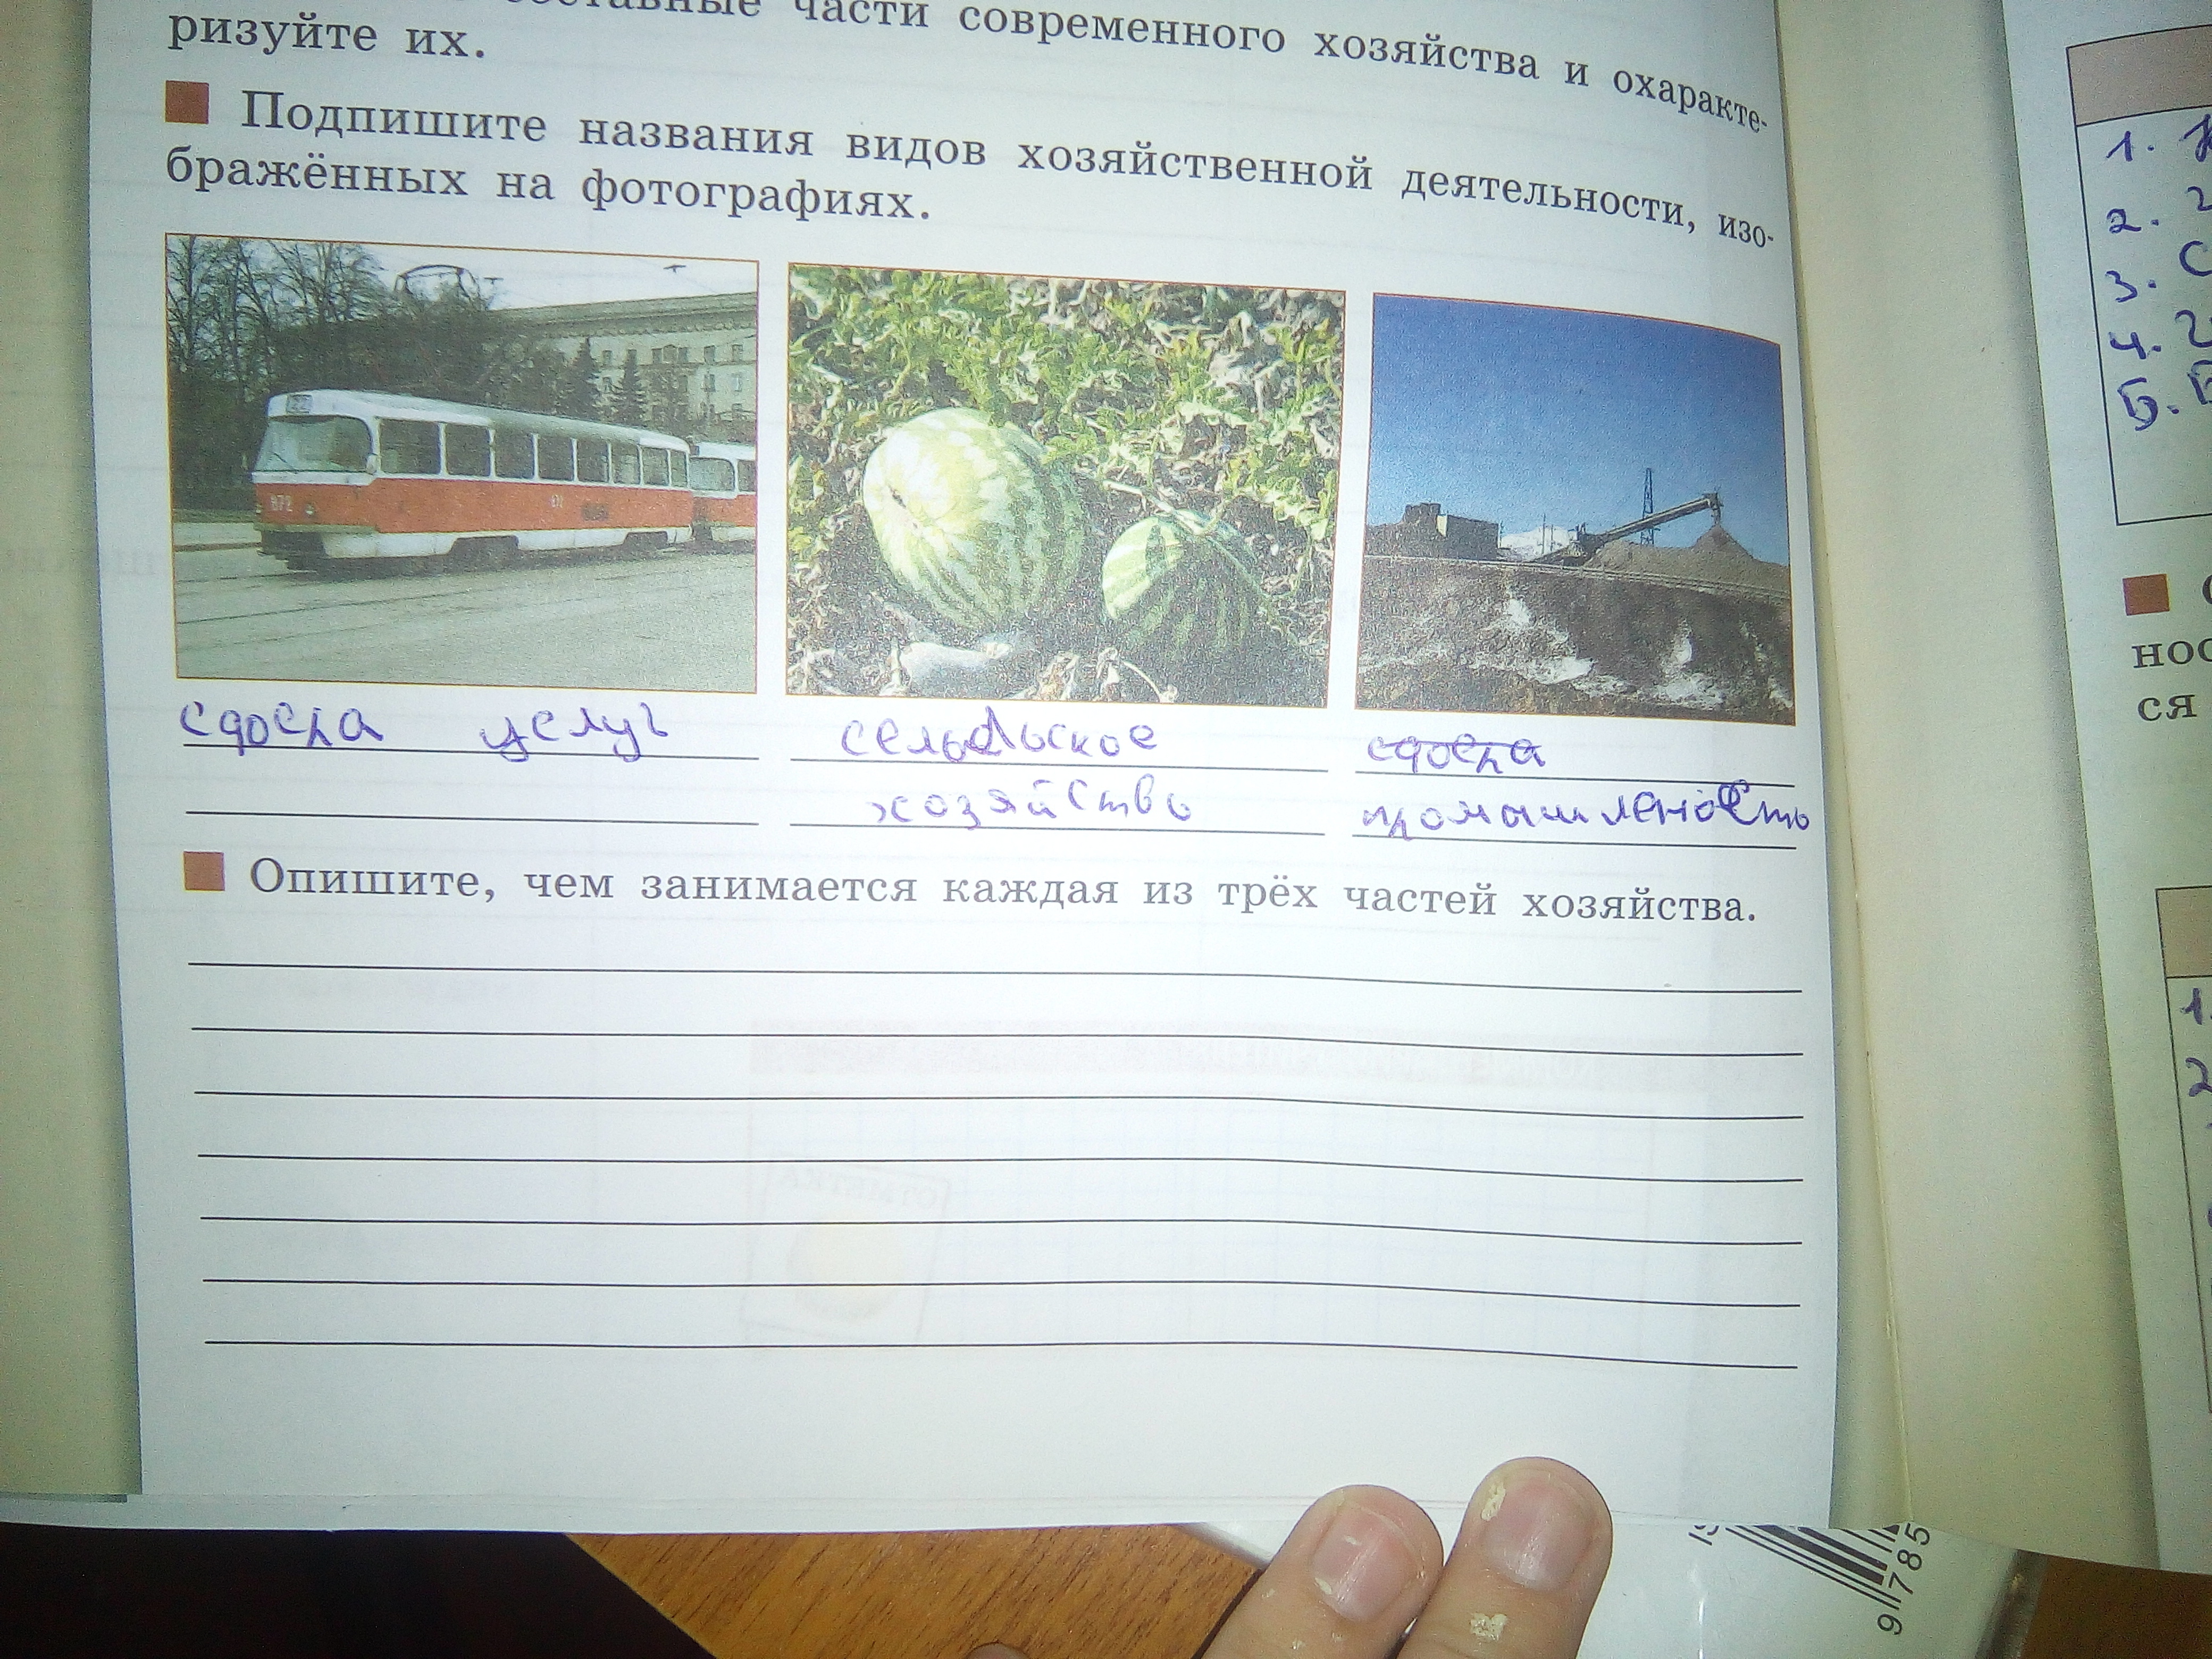 составные части современного хозяйства и охаракте-
ризуйте их.
Подпишите названия видов хозяйственной деятельности, изо-
бражённых на фотографиях.
22
872
сфера услуг
сельское
сфера
хозяйство
промышленость
Опишите, чем занимается каждая из трёх частей хозяйства.
ОТМЕТКА
1.
2.
3.
4.
5.
нос
ся
1.
2
9 785